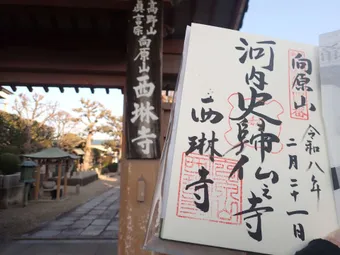 高野山
真言宗
向原山
西琳寺
向原山
河内史帰仏之寺
西琳寺
令和八年
二月二十一日